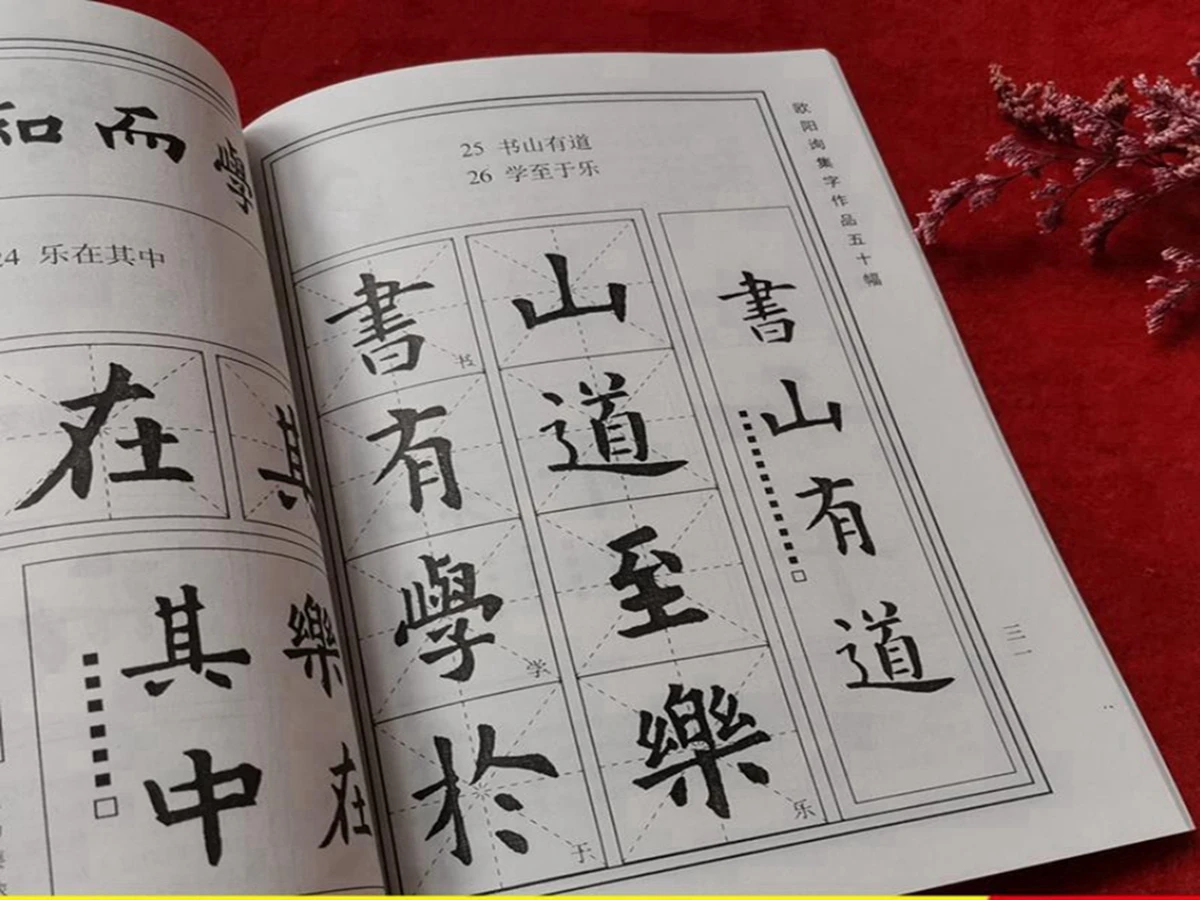 和而學
24 乐在其中
在其
其中
樂在
25 书山有道
26 学至于乐
書山
有道
學至
於樂
书
学
于
乐
書山有道
欧阳询集字作品五十幅
三一